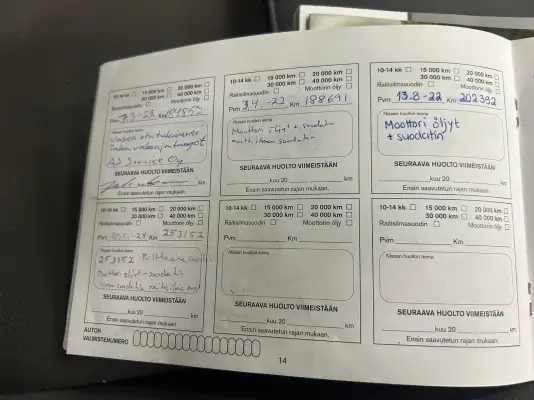 10-14 kk 15 000 km 20 000 km
30 000 km 40 000 km
Raitisilmasuodin Moottorin öljy
Pvm Km
Nissan huollon leima
AJ Service Oy
SEURAAVA HUOLTO VIIMEISTÄÄN
km
Ensin saavutetun rajan mukaan.
10-14 kk 15 000 km 20 000 km
30 000 km 40 000 km
Raitisilmasuodin Moottorin öljy
Pvm 3.4.-22 Km 188691
Nissan huollon leima
Moottori öljyt + suodatin
SEURAAVA HUOLTO VIIMEISTÄÄN
kuu 20 km
Ensin saavutetun rajan mukaan.
10-14 kk 15 000 km 20 000 km
30 000 km 40 000 km
Raitisilmasuodin Moottorin öljy
Pvm 13.8-22 Km 202392
Nissan huollon leima
Moottori öljyt
+ suodatin
SEURAAVA HUOLTO VIIMEISTÄÄN
kuu 20 km
Ensin saavutetun rajan mukaan.
10-14 kk 15 000 km 20 000 km
30 000 km 40 000 km
Raitisilmasuodin Moottorin öljy
Pvm Km 253152
Nissan huollon leima
253152
Moottori öljyt + suodatin
SEURAAVA HUOLTO VIIMEISTÄÄN
kuu 20 km
Ensin saavutetun rajan mukaan.
10-14 kk 15 000 km 20 000 km
30 000 km 40 000 km
Raitisilmasuodin Moottorin öljy
Pvm Km
Nissan huollon leima
SEURAAVA HUOLTO VIIMEISTÄÄN
kuu 20 km
Ensin saavutetun rajan mukaan.
10-14 kk 15 000 km 20 000 km
30 000 km 40 000 km
Raitisilmasuodin Moottorin öljy
Pvm Km
Nissan huollon leima
SEURAAVA HUOLTO VIIMEISTÄÄN
kuu 20 km
Ensin saavutetun rajan mukaan.
AUTON
VALMISTENUMERO
14